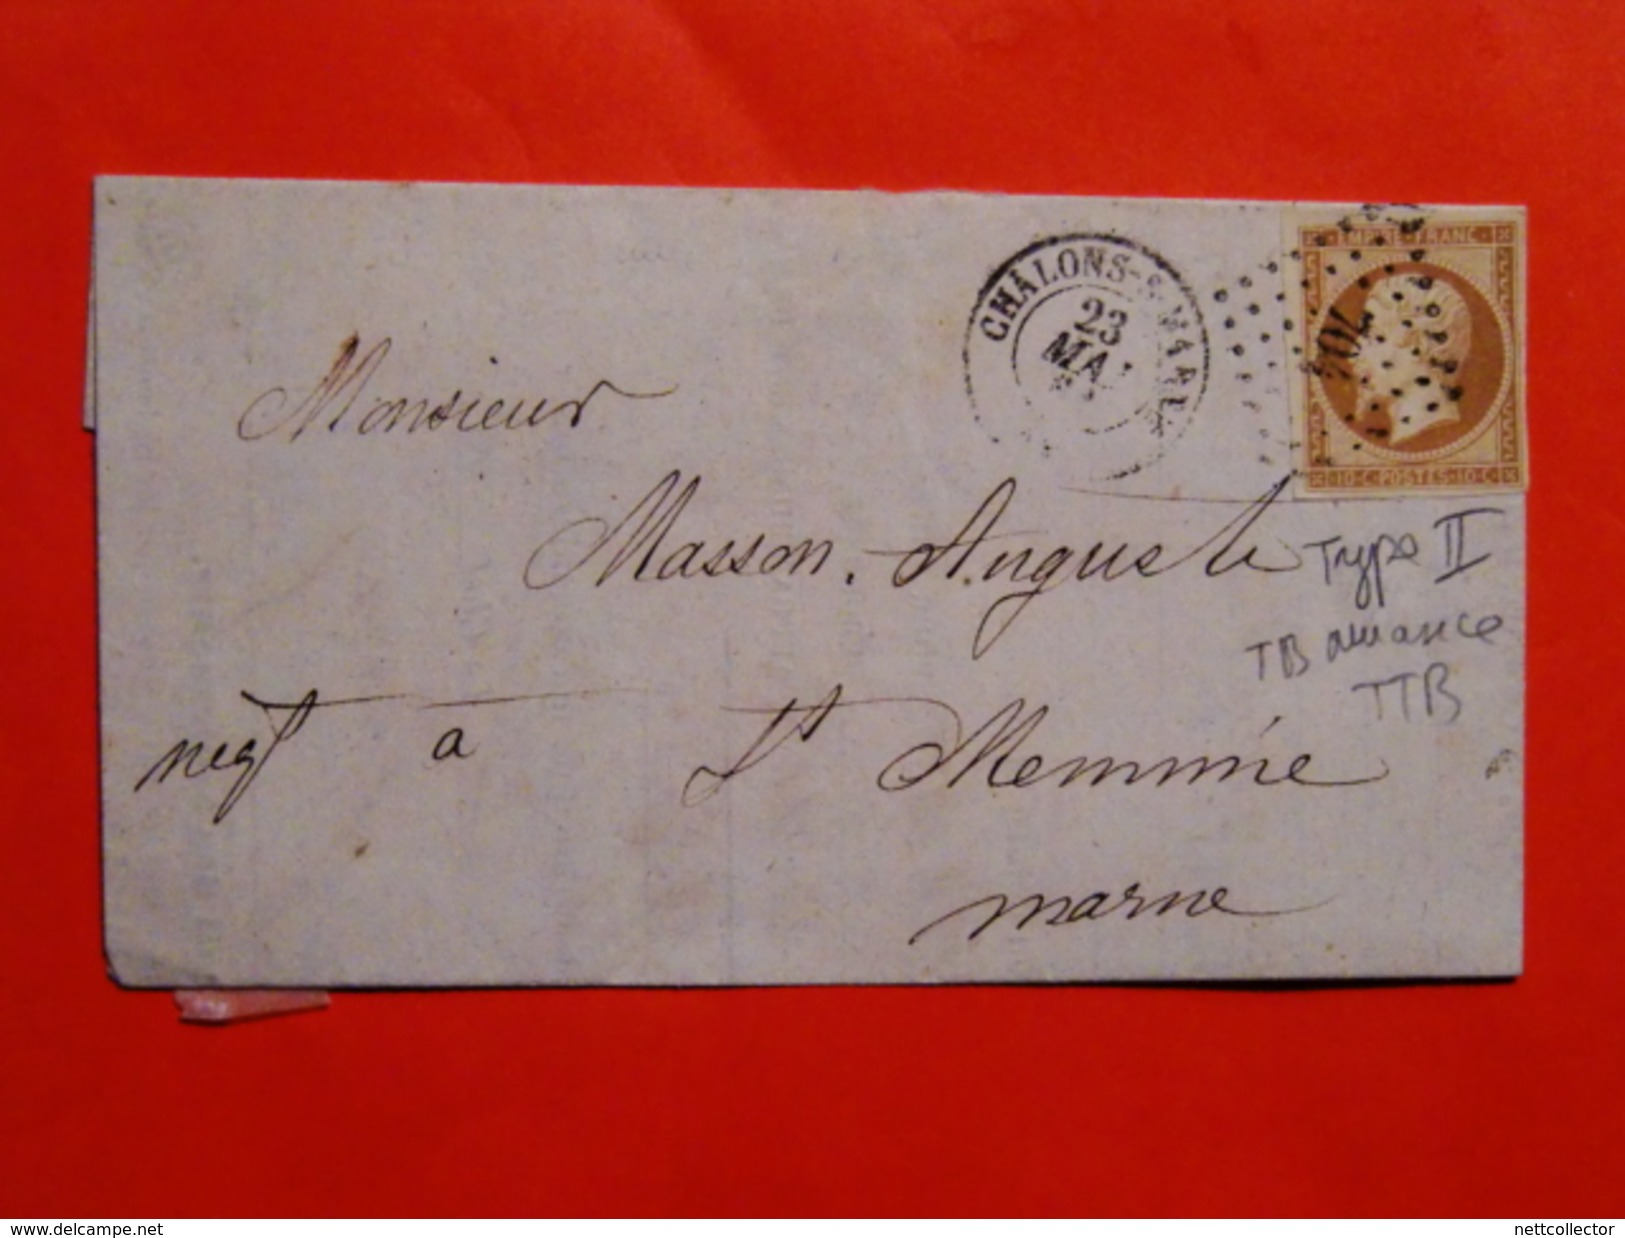 CHALONS-S-MARNE
23
MAI
EMPIRE·FRANC·
704
10·C·POSTES·10·C
Monsieur
Masson. Auguste
negt à St Memmie
marne
Type II
TB nuance
TTB
www.delcampe.net
nettcollector